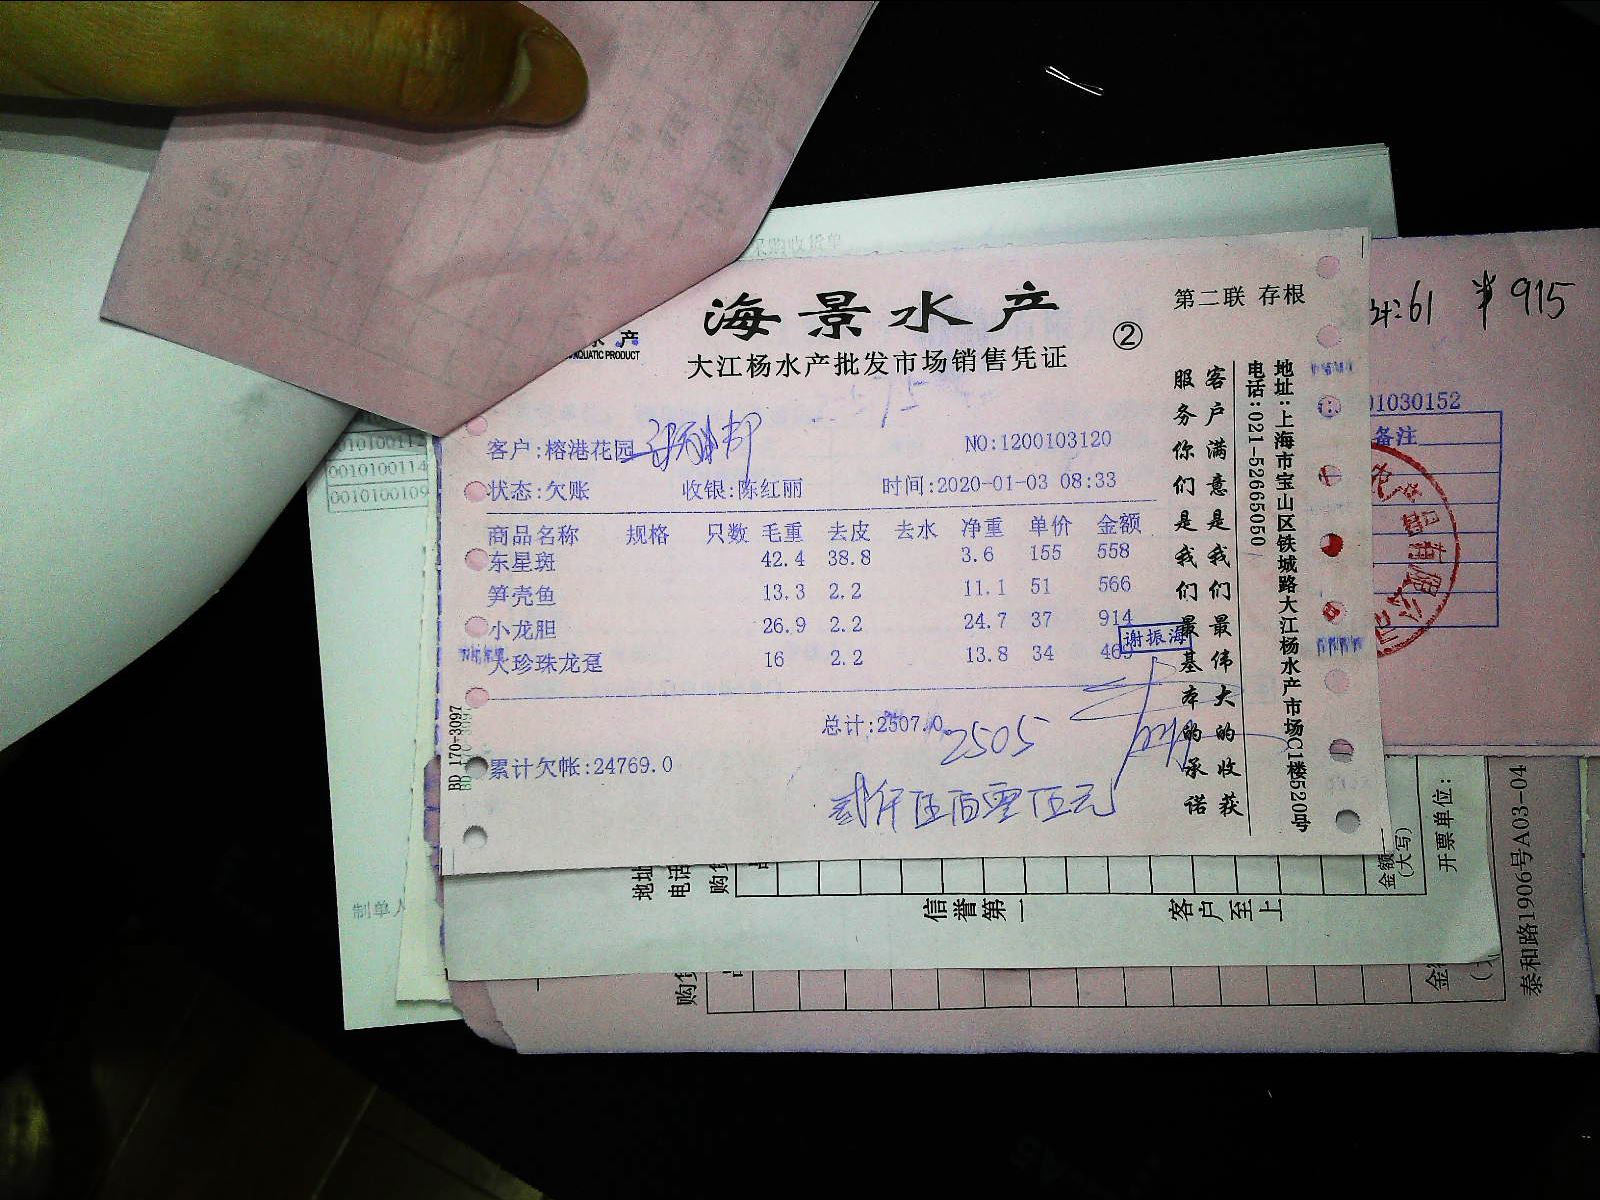 采购收货单
海景水产
水产
AQUATIC PRODUCT
大江杨水产批发市场销售凭证
②
第二联 存根
客户:榕港花园
NO:1200103120
状态:欠账 收银:陈红丽 时间:2020-01-03 08:33
商品名称 规格 只数 毛重 去皮 去水 净重 单价 金额
东星斑 42.4 38.8 3.6 155 558
笋壳鱼 13.3 2.2 11.1 51 566
小龙胆 26.9 2.2 24.7 37 914
大珍珠龙趸 16 2.2 13.8 34 469
谢振海
总计:2507.0
2505
累计欠帐:24769.0
贰仟伍佰零伍元
BD 170-3097
客户满意是我们最伟大的收获
服务你们是我们最基本的承诺
地址:上海市宝山区铁城路大江杨水产市场C1楼520号
电话:021-52665050
61 915
01030152
备注
有限公司
0010100112
0010100114
0010100109
制单人
地址
电话
购货
信誉第一 客户至上
金额
(大写)
开票单位:
购货
金额
泰和路1906号A03-04